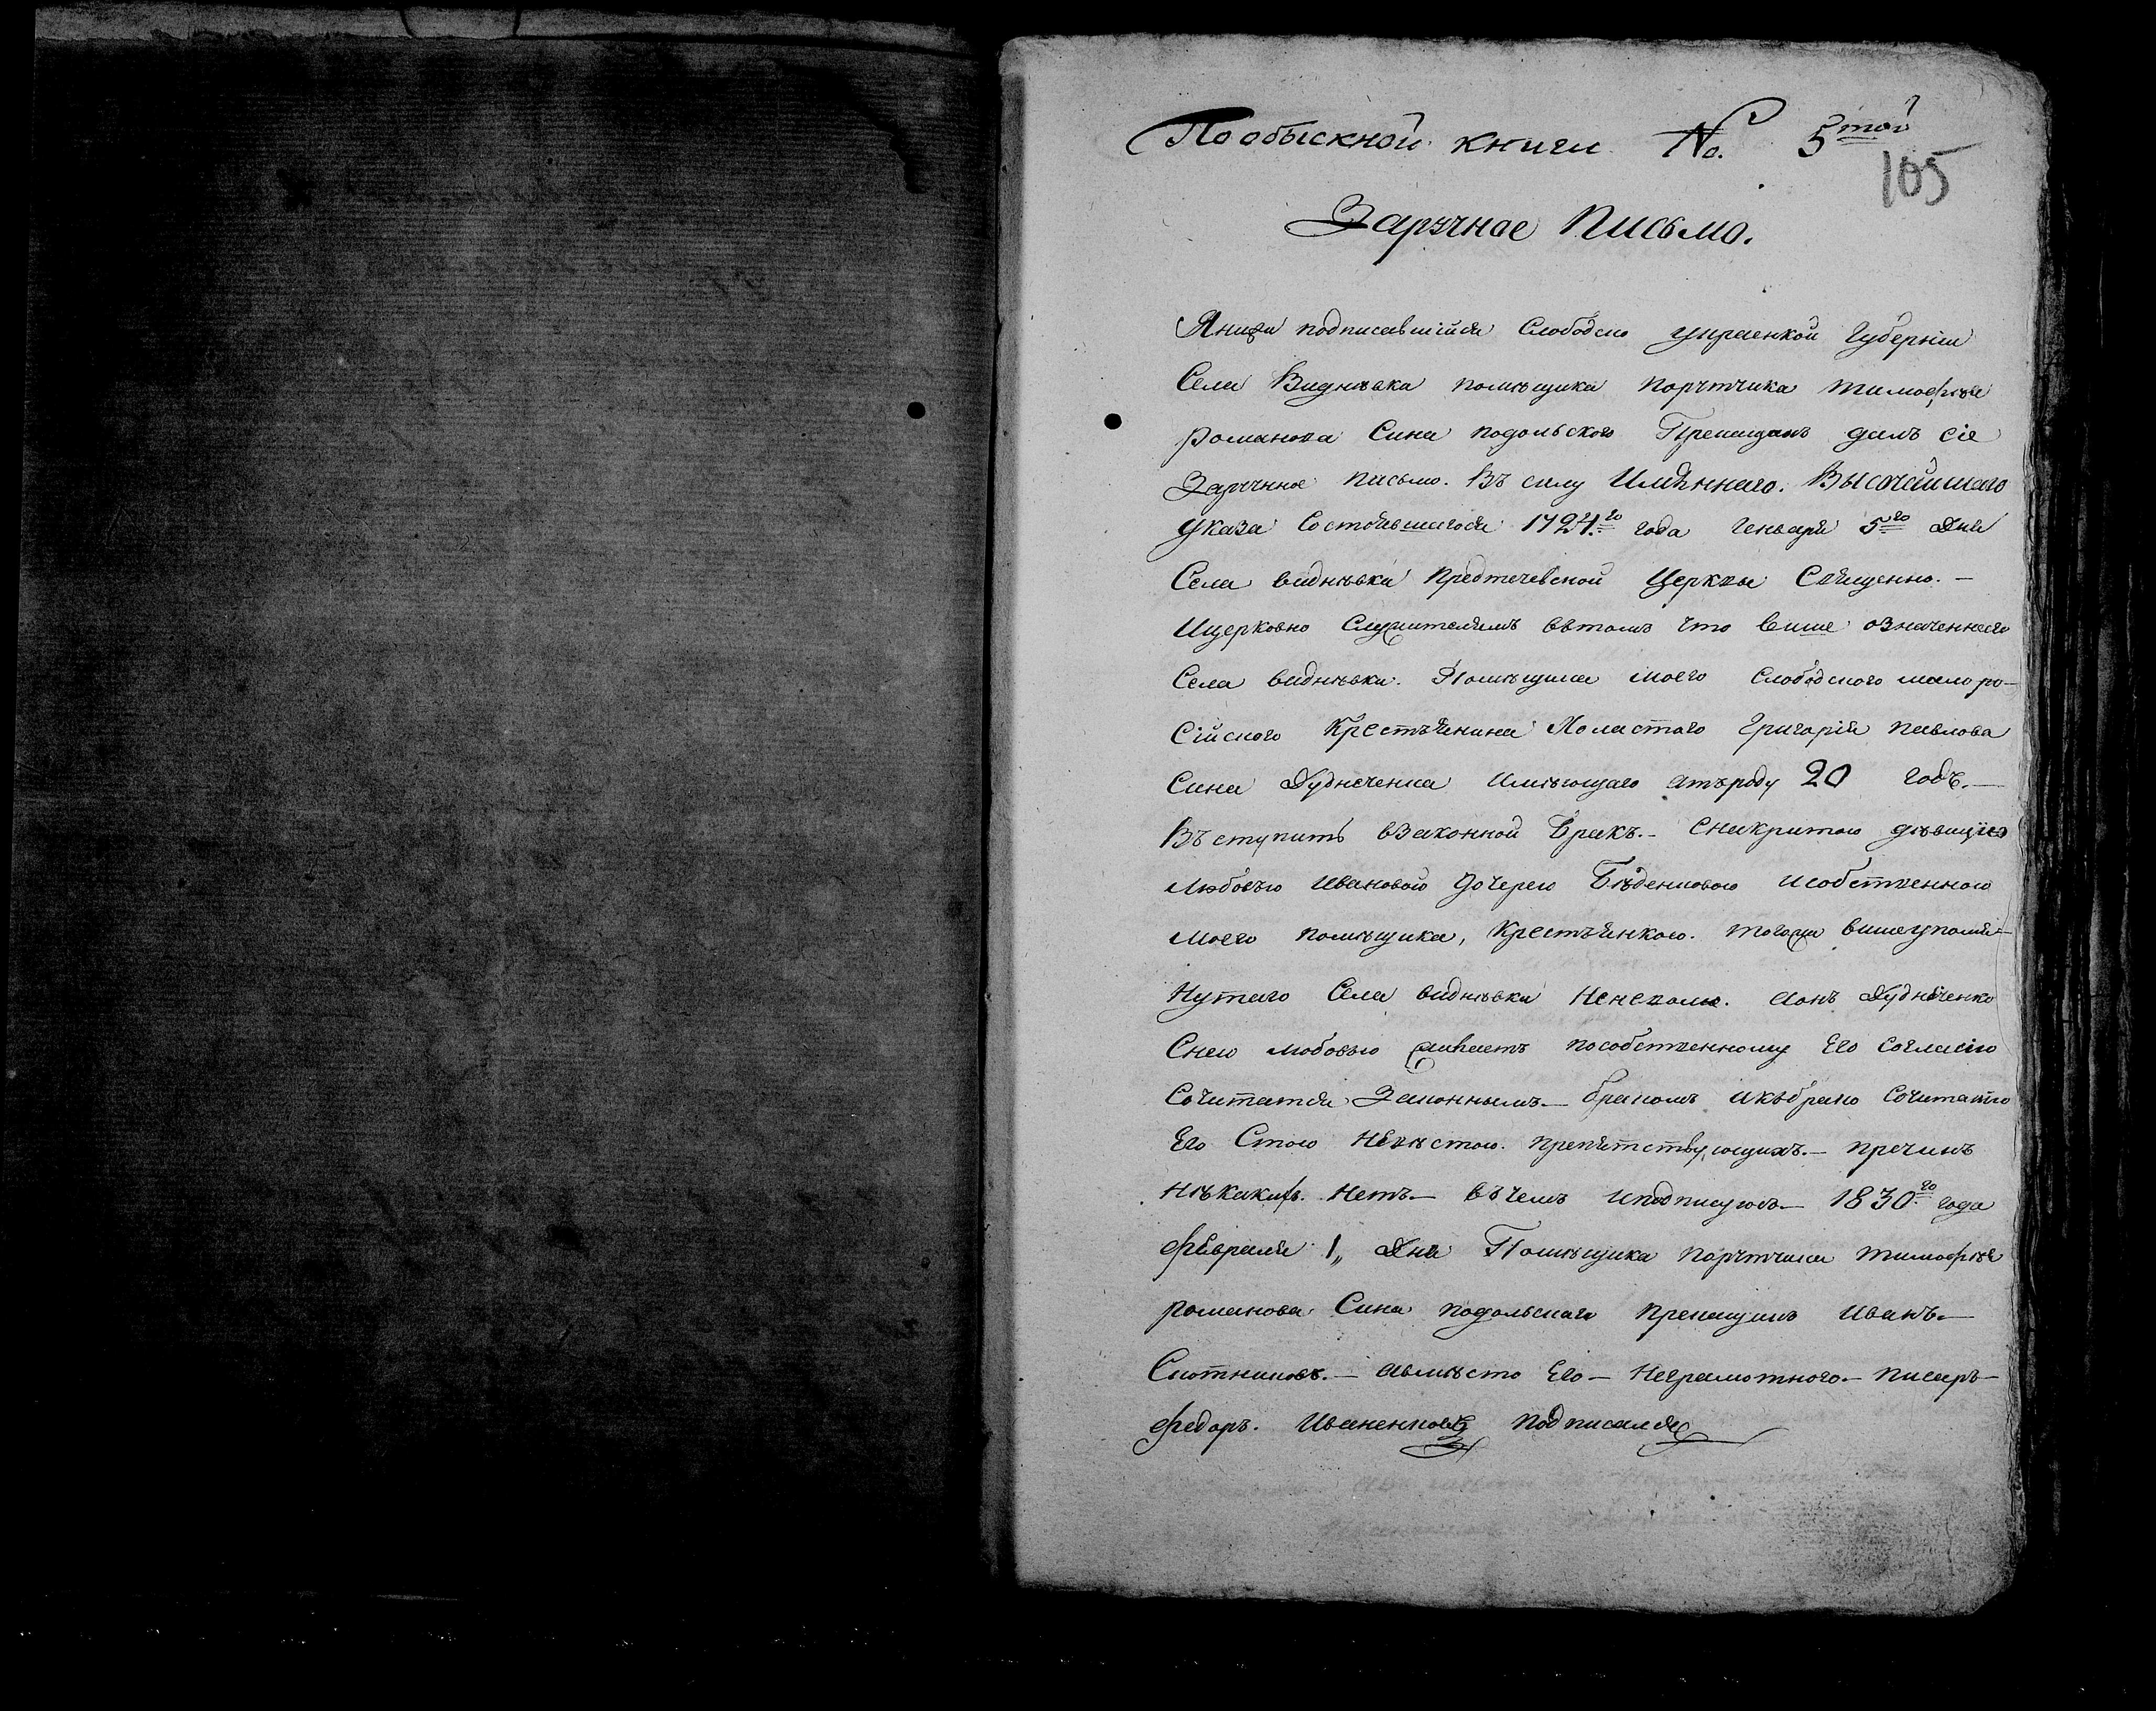 По обыскной книги No. 5той
105
Заручное Письмо.
Яниже подписавшійся Слободско украенкой Губерніи
Села Виднѣвка помѣщика порутчика тимофѣя
романова Сина подольского Прекащикъ далъ сіе
Заручное письмо. Въ силу Имѣннаго. Высочайшаго
указа Состоявшагося 1724го года Генваря 5го Дня
Села виднѣвки предтечевской Церкви Священно. —
Ицерковно Служителямъ втомъ что више означеннаго
Села виднѣвки. Помѣщика моего Слободского малоро-
Сійского Крестьянина Холастого Григорія павлова
Сина Дудниченка имѣющаго отъроду 20 годъ. —
Въступить взаконной Бракъ. — снакритою дѣвицую
Любовъю ивановою дочерею Бѣденковою исобственною
моего помѣщика, Крестьянкою. тогожа вишеупомя-
Нутаго Села виднѣвки Неневолю. аонъ Дудниченко
Снею любовью желаетъ пособственному Его согласію
Сочитатся Законнымъ — бракомъ икъбрако Сочитанію
Его Стою Невѣстою. препятствующихъ. — пречинъ
нѣкакихъ. нетъ — въчемъ иподписуюсь — 1830го года
февраля 1„ Дня Помѣщика порутчика тимофѣя
романова Сина подольскаго прекащикъ иванъ —
Скотниковъ. — авмѣсто Его — Неграмотного — писарь —
федоръ. Иваненковъ подписался